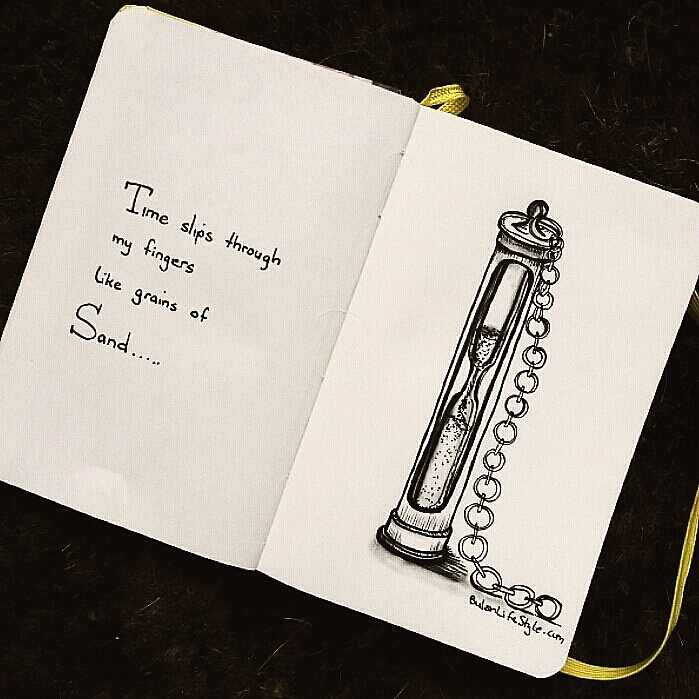 Time slips through
my fingers
like grains of
Sand.....
BulanLifeStyle.com